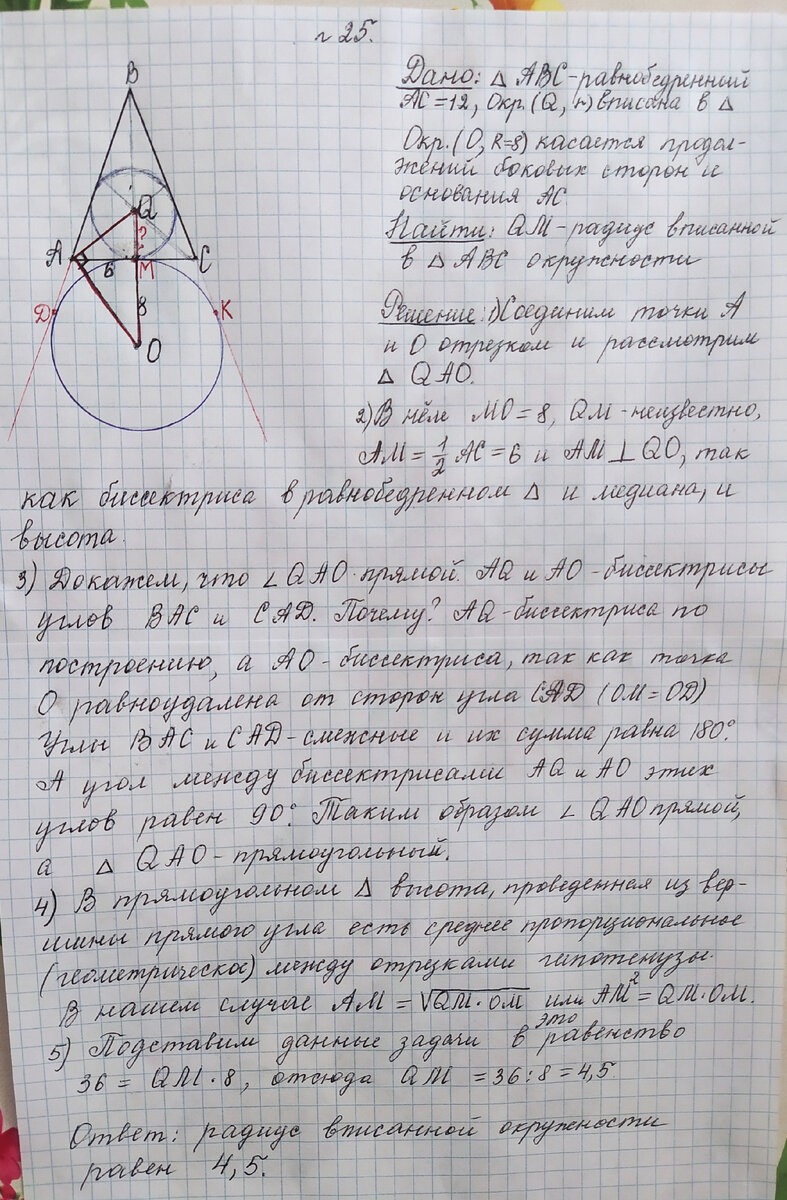 № 25.
Дано: △ ABC-равнобедренный
AC=12, Окр.(Q, r) вписана в △
Окр.(O, R=8) касается продол-
жений боковых сторон и
основания AC.
Найти: QM-радиус вписанной
в △ ABC окружности
B
Q
?
A
6
M
C
Д
8
K
O
Решение: 1) Соединим точки A
и O отрезком и рассмотрим
△ QAO.
2) В нём MO=8, QM-неизвестно,
AM=1/2 AC=6 и AM⊥QO, так
как биссектриса в равнобедренном △ и медиана, и
высота.
3) Докажем, что ∠QAO прямой. AQ и AO-биссектрисы
углов BAC и CAD. Почему? AQ-биссектриса по
построению, а AO-биссектриса, так как точка
O равноудалена от сторон угла CAD (OM=OD)
Углы BAC и CAD-смежные и их сумма равна 180°.
А угол между биссектрисами AQ и AO этих
углов равен 90°. Таким образом ∠ QAO прямой,
а △ QAO-прямоугольный.
4) В прямоугольном △ высота, проведенная из вер-
шины прямого угла есть среднее пропорциональное
(геометрическое) между отрезками гипотенузы.
В нашем случае AM = √QM·OM или AM²=QM·OM.
5) Подставим данные задачи в это равенство
36 = QM·8, отсюда QM = 36:8=4,5.
Ответ: радиус вписанной окружности
равен 4,5.